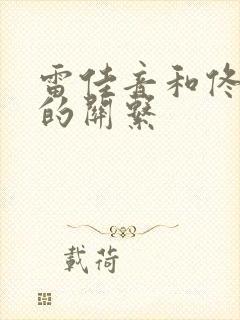 雷佳音和佟
的關繫
載荷